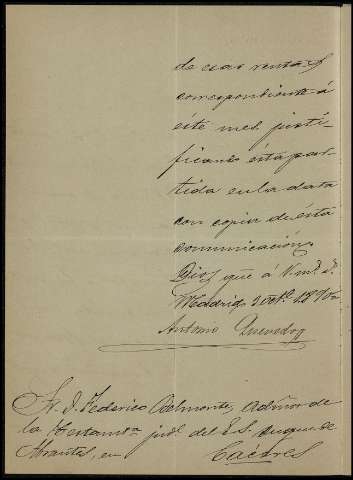 de esas rentas y
correspondiente á
este mes, justi-
ficando esta par-
tida en la data
con copia de ésta
comunicación.
Dios gue á V. m.s a.s
Madrid 2 Oct.e 1890
Antonio Quevedo
Sr. D. Federico Belmonte, Admor de
la Testam.ª jud.l del E. S. Duque de
Abrantes, en Cáceres